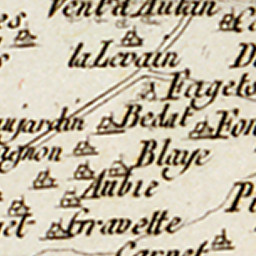 Vent d'Autan
la Levain
Fagets
aujardin Bedat Fon
agnon Blaye
Aubie
Gravette
Carnet